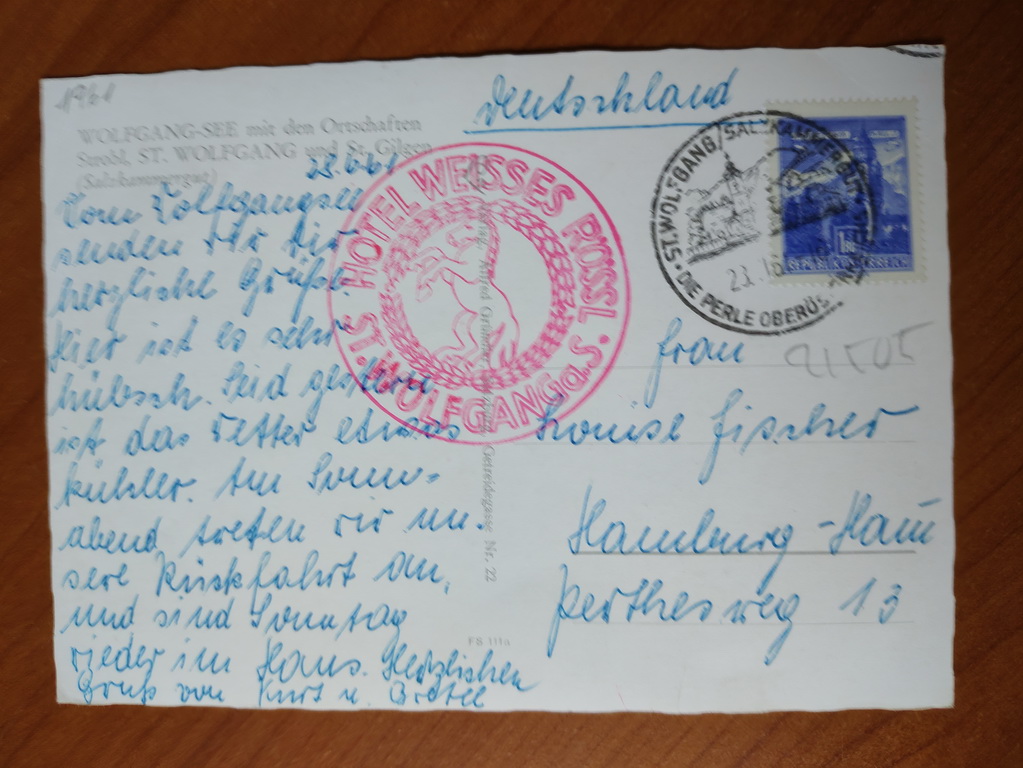 1961
WOLFGANG-SEE mit den Ortschaften
Strobl, ST. WOLFGANG und St. Gilgen
(Salzkammergut)
Vom Wolfgangsee
senden wir Dir
herzliche Grüße.
Hier ist es sehr
hübsch. Seid gestern
ist das Wetter etwas
kühler. Am Sonn-
abend treten wir un-
sere Rückfahrt an,
und sind Sonntag
wieder im Haus. Herzlichen
Gruß von Kurt u. Gretel
HOTEL WEISSES RÖSSL
ST. WOLFGANG a. S.
Alfred
Getreidegasse Nr. 22
FS 1115
Deutschland
ST. WOLFGANG / SALZKAMMERGUT
DIE PERLE OBERÖS
23.
REPUBLIK ÖSTERREICH
Frau
Louise Fischer
Hamburg-Ham
Perthesweg 13